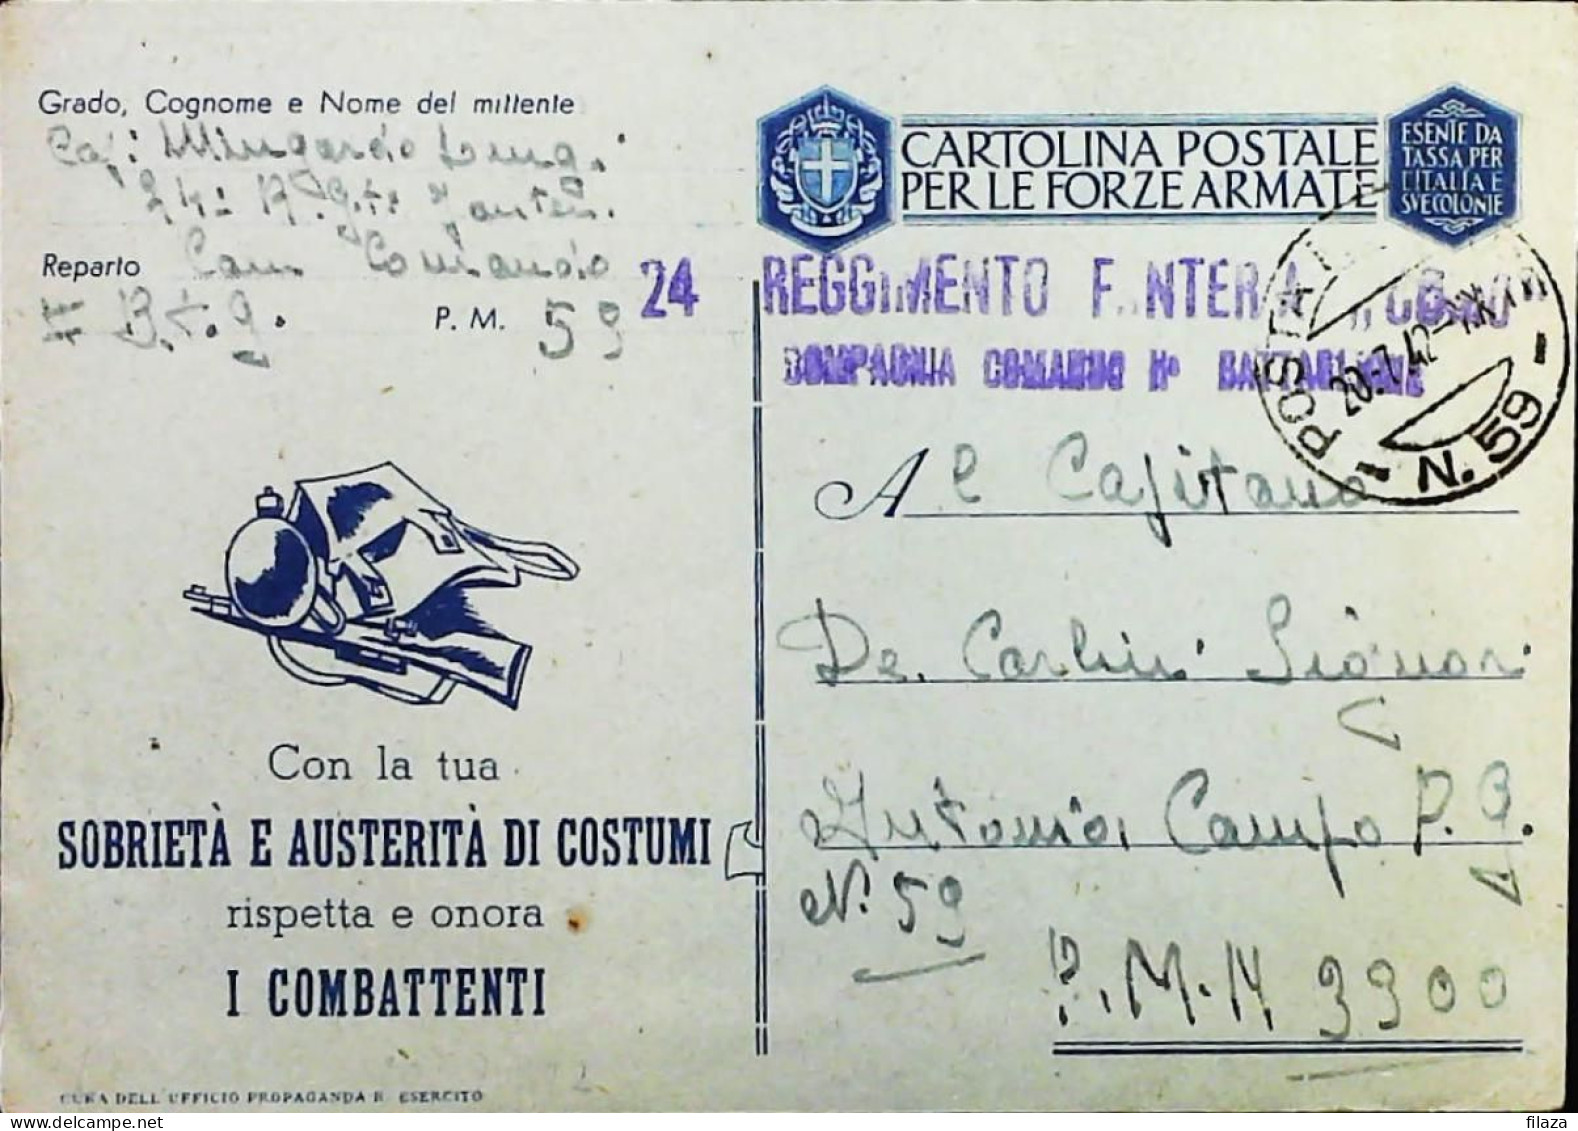 Grado, Cognome e Nome del mittente
Cap: Mingardo
24=
Reparto Com Comando
II B.t.g. P. M. 59
CARTOLINA POSTALE
PER LE FORZE ARMATE
ESENTE DA
TASSA PER
L'ITALIA E
SUE COLONIE
24 REGGIMENTO FANTERIA "COMO"
COMPAGNIA COMANDO II° BATTAGLIONE
POSTA N. 59
20.7.42
Al Capitano
De Carlini Signor
Antonio, Campo P. G.
N. 59
P. M. N 3300
Con la tua
SOBRIETÀ E AUSTERITÀ DI COSTUMI
rispetta e onora
I COMBATTENTI
CURA DELL'UFFICIO PROPAGANDA R. ESERCITO
filaza